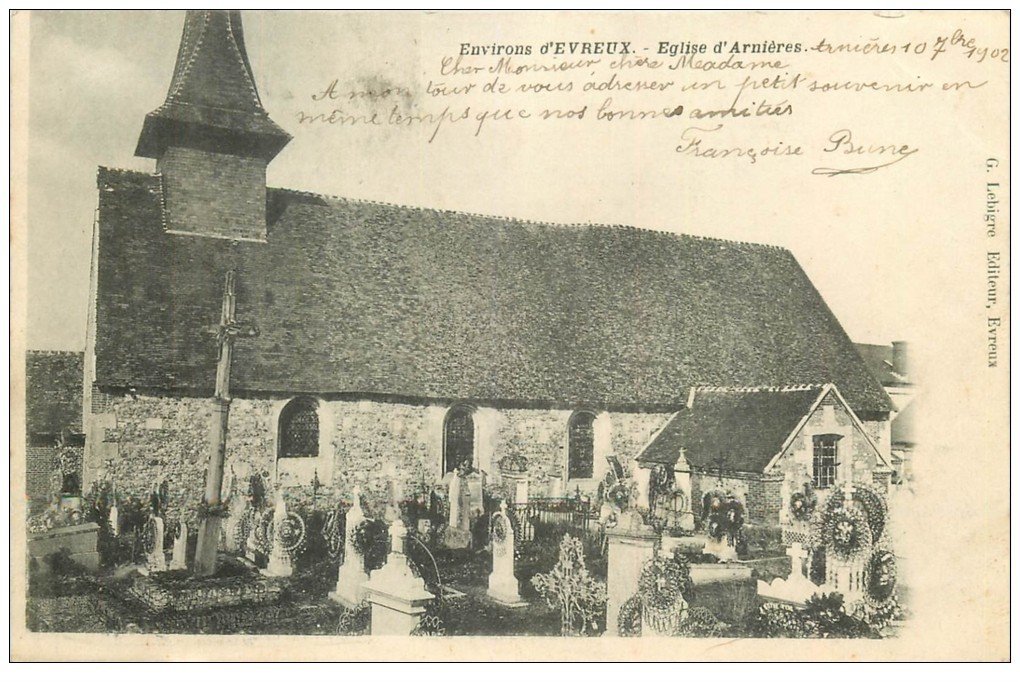 Environs d'EVREUX. - Eglise d'Arnières. Arnières 10 7bre 1902
Cher Monsieur chère Meadame
A mon tour de vous adresser un petit souvenir en
même temps que nos bonnes amitiés
Françoise Bunc
G. Lebigre Editeur, Evreux